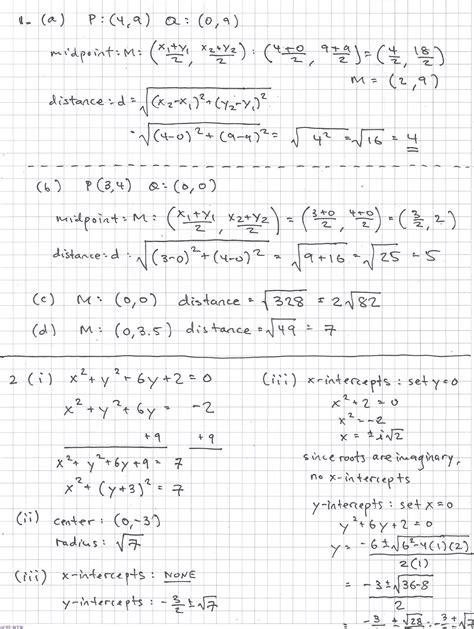 1- (a) P: (4,9) Q: (0,9)
midpoint: M: ((x₁+y₁)/2, (x₂+y₂)/2) : ((4+0)/2, (9+9)/2) = (4/2, 18/2)
M = (2,9)
distance: d = √((x₂-x₁)²+(y₂-y₁)²)
= √((4-0)²+(9-9)²) = √4² = √16 = 4
(b) P(3,4) Q: (0,0)
midpoint: M: ((x₁+y₁)/2, (x₂+y₂)/2) = ((3+0)/2, (4+0)/2) = (3/2, 2)
distance: d: √((3-0)²+(4-0)²) = √(9+16) = √25 = 5
(c) M: (0,0) distance = √328 = 2√82
(d) M: (0,3.5) distance = √49 = 7
2 (i) x²+y²+6y+2=0
x²+y²+6y = -2
+9 +9
x²+y²+6y+9 = 7
x²+(y+3)² = 7
(ii) center: (0,-3)
radius: √7
(iii) x-intercepts: NONE
y-intercepts: -3/2 ± √7
(iii) x-intercepts: set y=0
x²+2=0
x²=-2
x = ±i√2
since roots are imaginary,
no x-intercepts
y-intercepts: set x=0
y²+6y+2=0
y = (-6±√(6²-4(1)(2)))/2(1)
= (-3±√(36-8))/2
= -3/2 ± √28